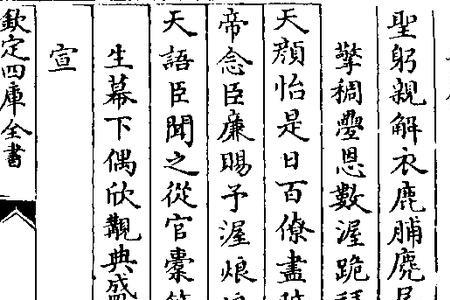 聖躬親解衣鹿脯
擎稠疊恩數渥跪
天顔怡是日百僚盡
帝念臣廉賜予渥烺
天語臣聞之從官橐
生幕下偶欣觀典盛
宣
欽定四庫全書